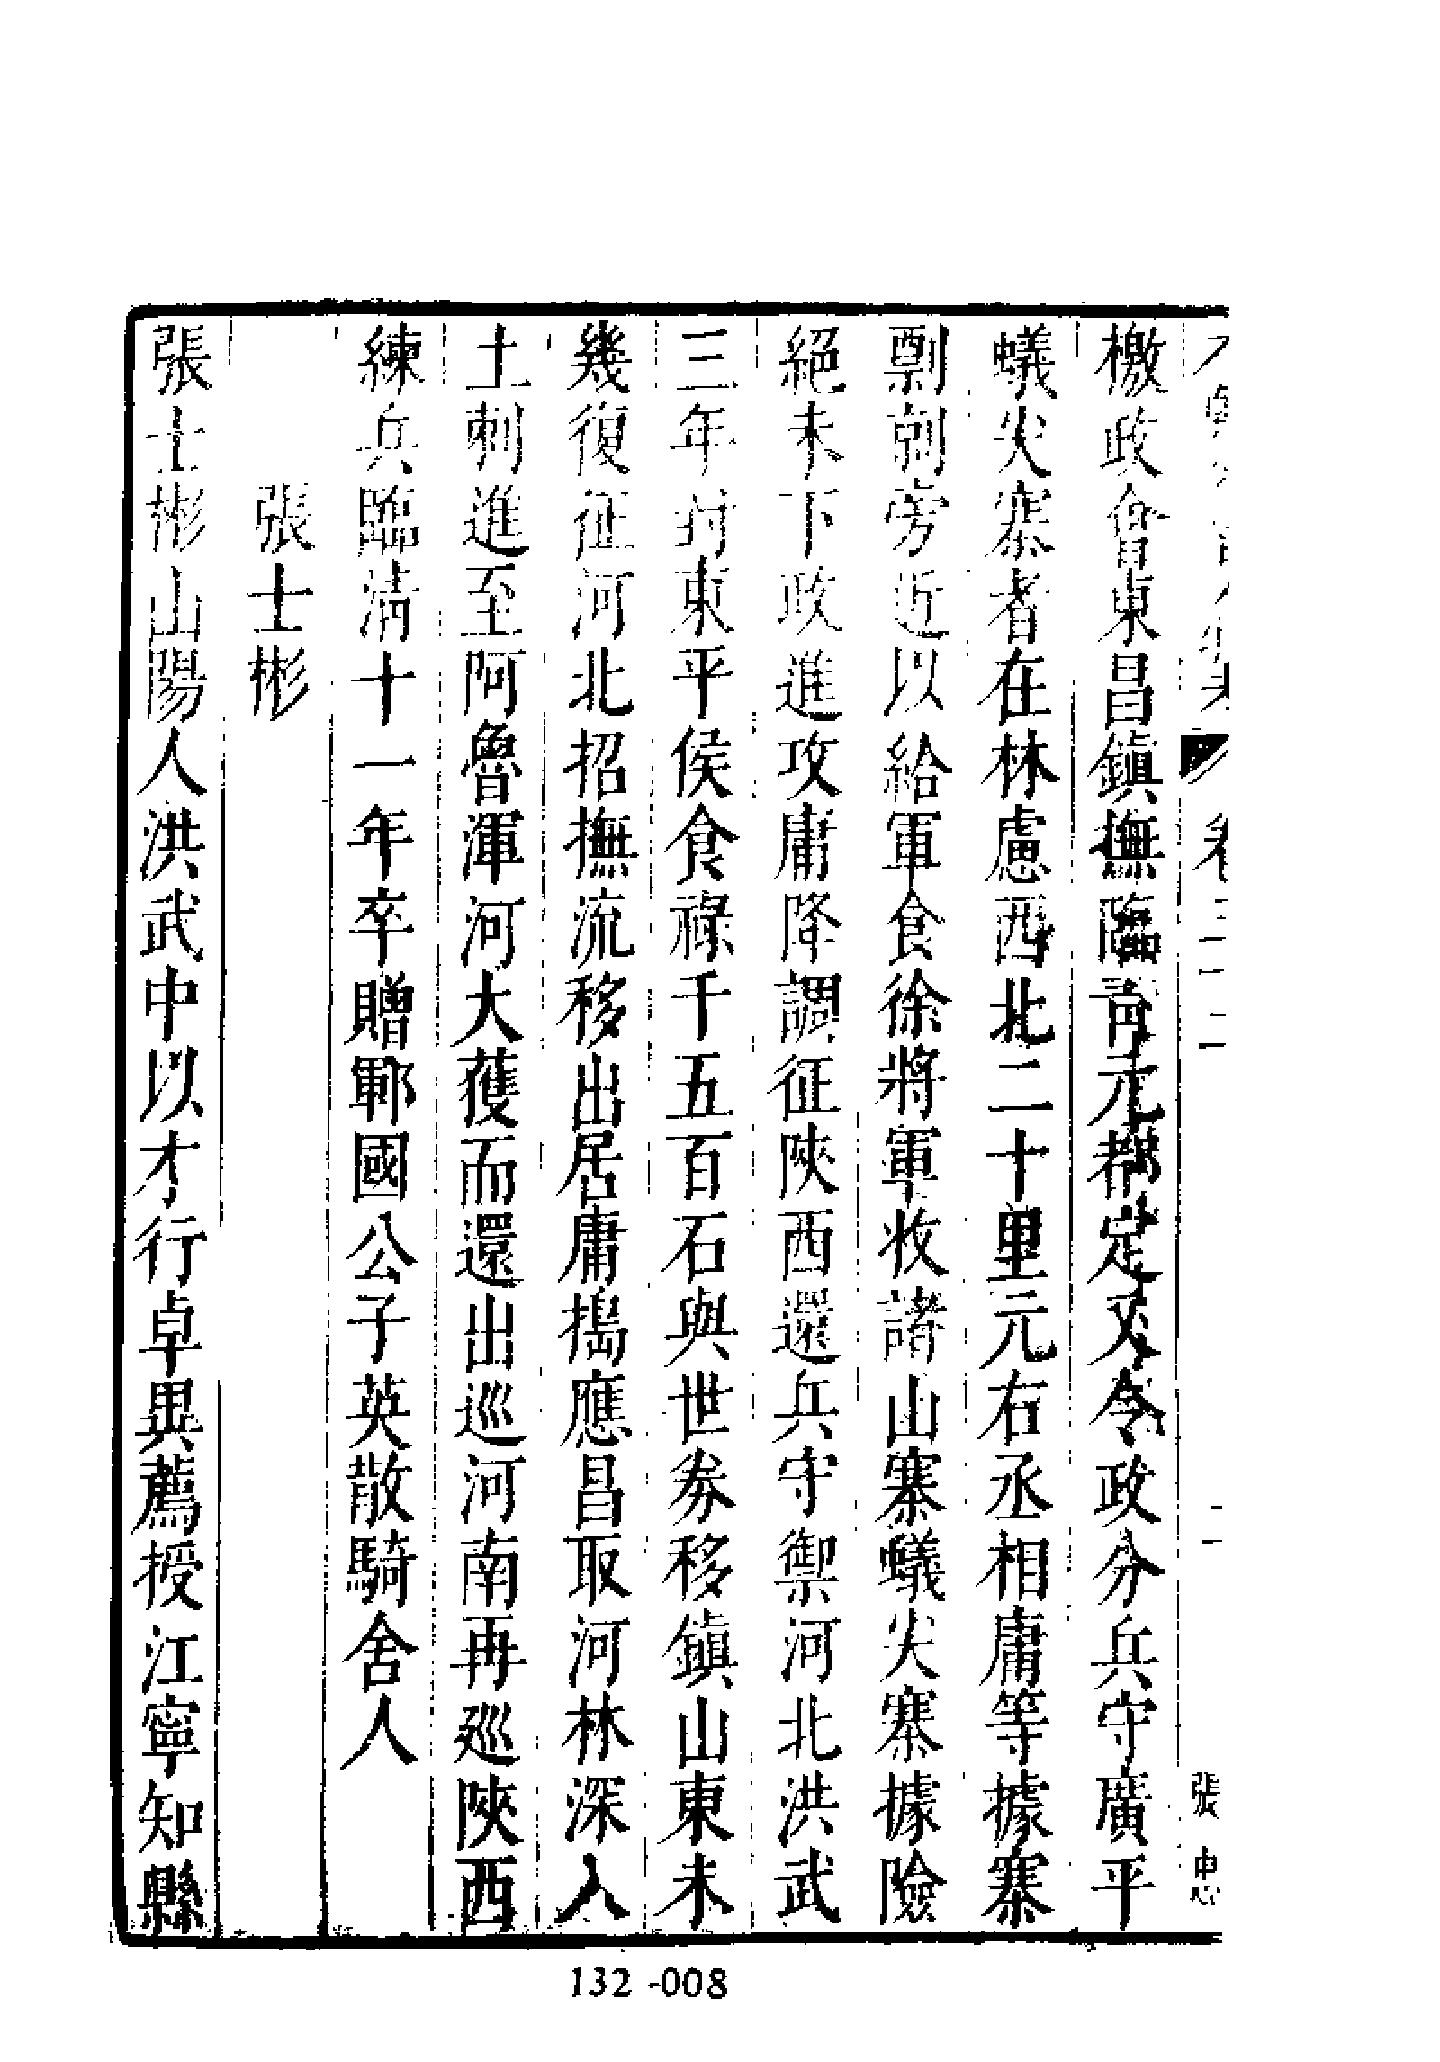 卷三十二
張忠
檄政會東昌鎮撫臨清元都定又令政分兵守廣平
蟻尖寨者在林慮西北二十里元右丞相庸等據寨
剽剠旁近以給軍食徐將軍收諸山寨蟻尖寨據險
絕未下政進攻庸降調征陝西還兵守禦河北洪武
三年封東平侯食祿千五百石與世券移鎮山東未
幾復征河北招撫流移出居庸搗應昌取河林深入
土剌進至阿魯渾河大獲而還出巡河南再巡陝西
練兵臨淸十一年卒贈鄆國公子英散騎舍人
張士彬
張士彬山陽人洪武中以才行卓異薦授江寧知縣
132-008